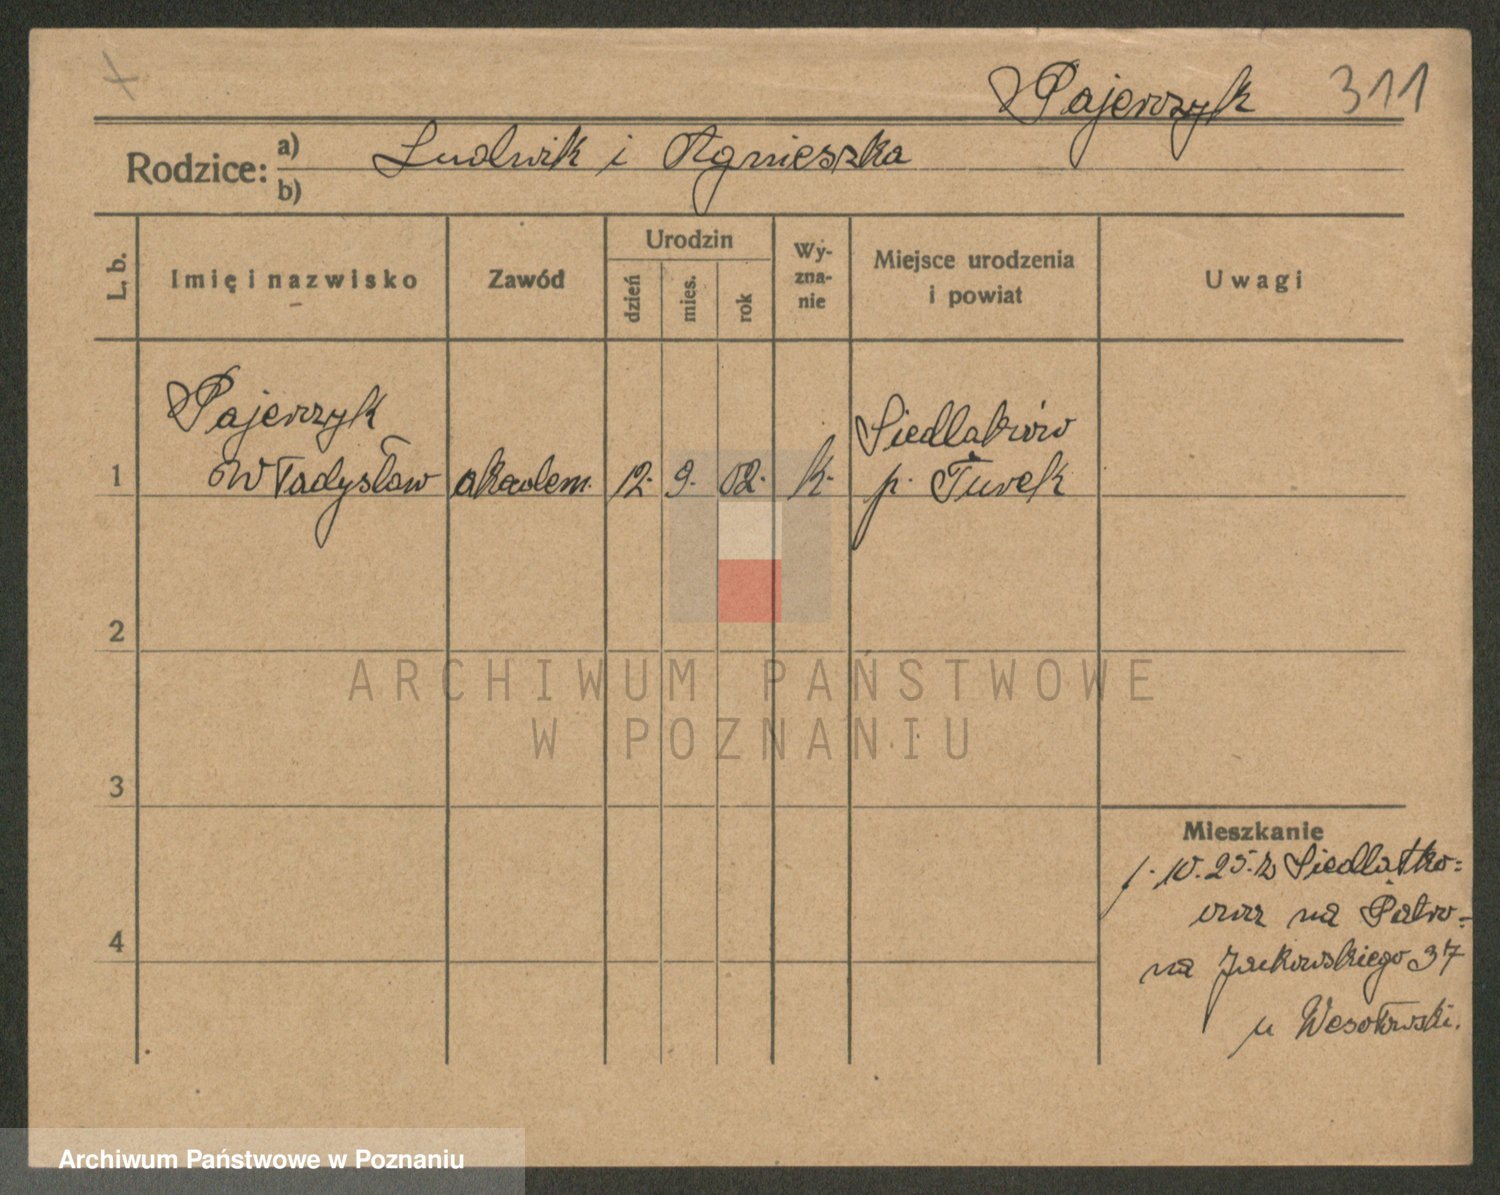 Pajerczyk 311
Rodzice: a) Ludwik i Agnieszka
b)
L. b.
Imię i nazwisko
Zawód
Urodzin
dzień
mies.
rok
Wy-
zna-
nie
Miejsce urodzenia
i powiat
Uwagi
Pajerczyk
1 Władysław akadem. 12. 9. 02. k.
Siedlaków
p. Turek
2
3
4
Mieszkanie
1. 10. 25. z Siedlatko-
na
na Jackowskiego 37
u Wesołowski.
ARCHIWUM PAŃSTWOWE
W POZNANIU
Archiwum Państwowe w Poznaniu